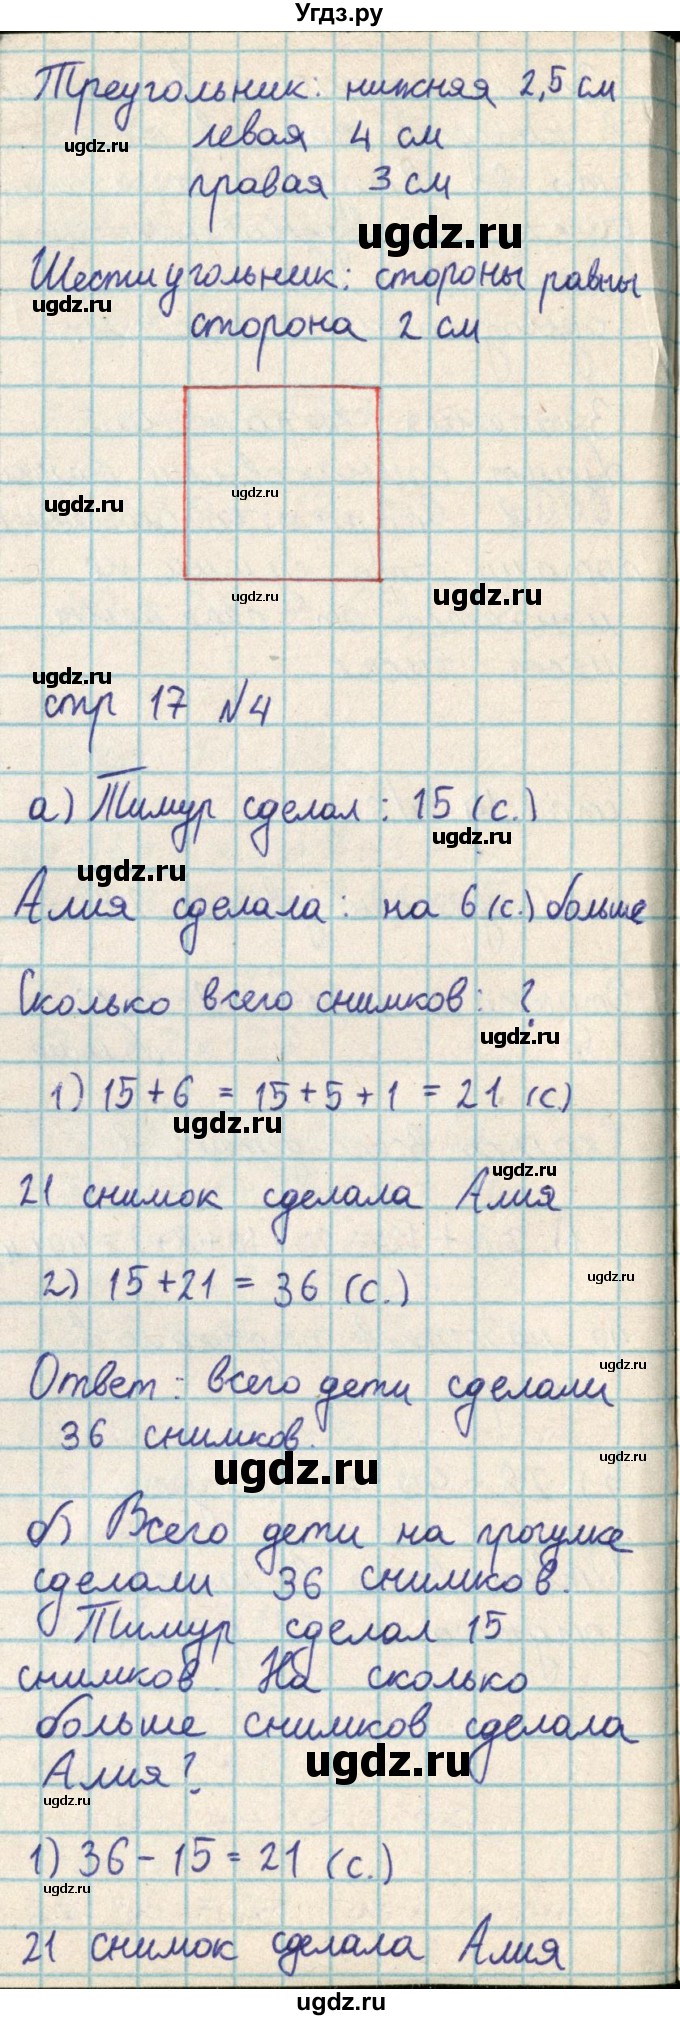 Угдз.ру
Треугольник: нижняя 2,5 см
ugdz.ru
левая 4 см
правая 3 см
ugdz.ru
Шестиугольник: стороны равны
ugdz.ru
сторона 2 см
ugdz.ru
ugdz.ru
ugdz.ru
ugdz.ru
ugdz.ru
стр 17 №4
а) Тимур сделал: 15 (с.)
ugdz.ru
ugdz.ru
Алия сделала: на 6 (с.) больше
Сколько всего снимков: ?
ugdz.ru
1) 15+6 = 15+5+1 = 21 (с)
ugdz.ru
ugdz.ru
21 снимок сделала Алия
2) 15+21 = 36 (с.)
ugdz.ru
ugdz.ru
Ответ: всего дети сделали
36 снимков.
ugdz.ru
ugdz.ru
б) Всего дети на прогулке
сделали 36 снимков.
Тимур сделал 15
снимков. На сколько
больше снимков сделала
ugdz.ru
Алия?
ugdz.ru
1) 36-15=21 (с.)
ugdz.ru
21 снимок сделала Алия
ugdz.ru